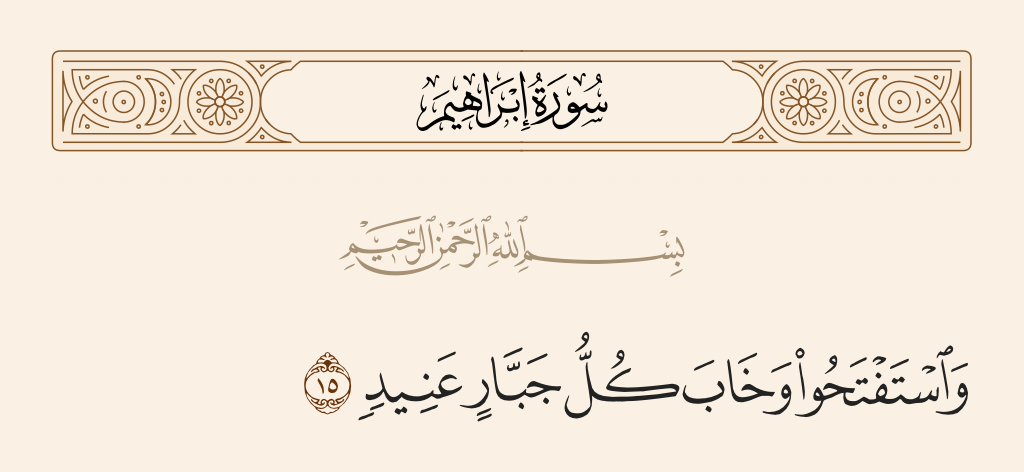 سُورَةُ إِبْرَاهِيمَ
بِسْمِ ٱللَّهِ ٱلرَّحْمَٰنِ ٱلرَّحِيمِ
وَٱسْتَفْتَحُوا۟ وَخَابَ كُلُّ جَبَّارٍ عَنِيدٍ ١٥